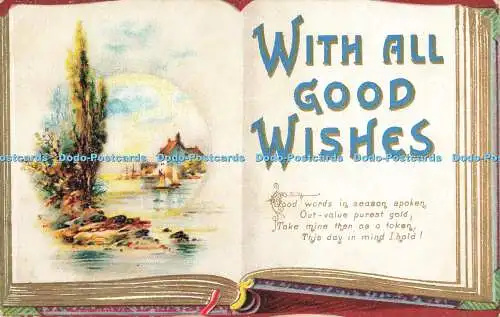 WITH ALL
GOOD
WISHES
Postcards Dodo-Postcards Dodo-Postcards Dodo-Postcards Dodo-Postcards Dodo-Postcards
Good words in season spoken,
Out-value purest gold,
Take mine then as a token,
This day in mind I hold!